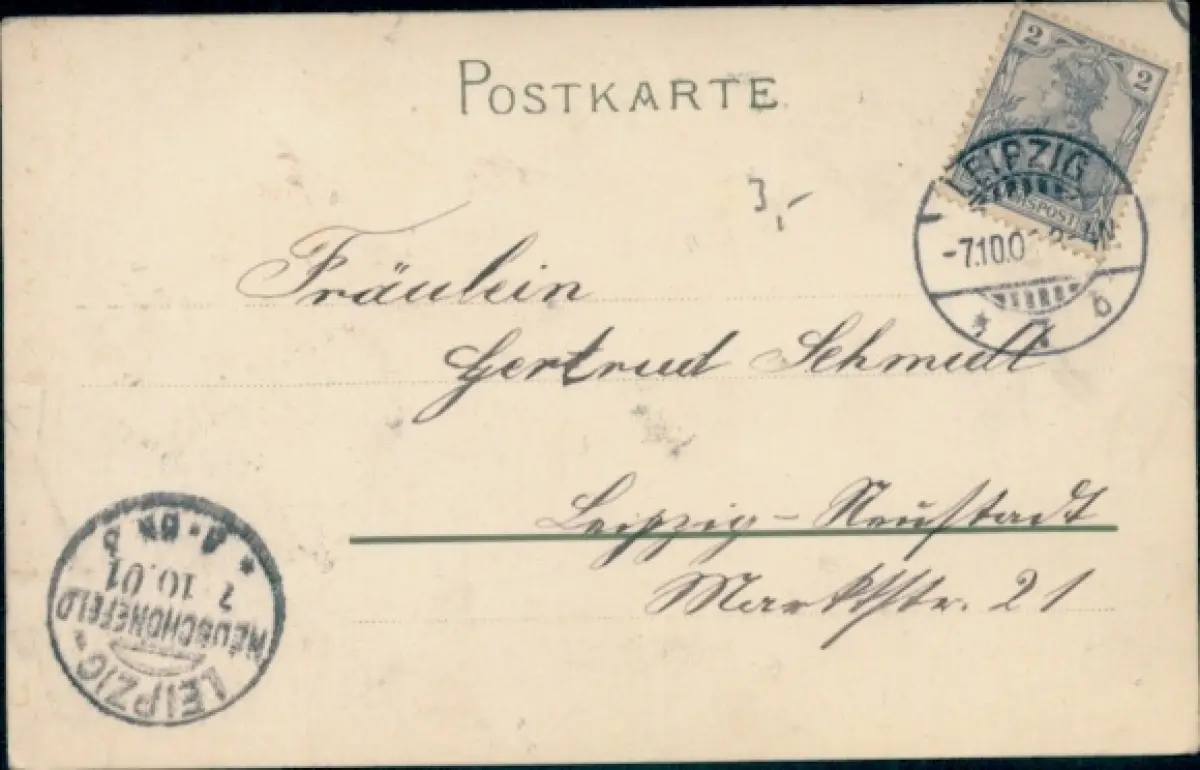 POSTKARTE
2 2
LEIPZIG
-7.10.0
3,-
Fräulein
Gertrud Schmidt
Leipzig-Neustadt
Marktstr. 21
LEIPZIG-
NEUSCHÖNEFELD
7.10.01